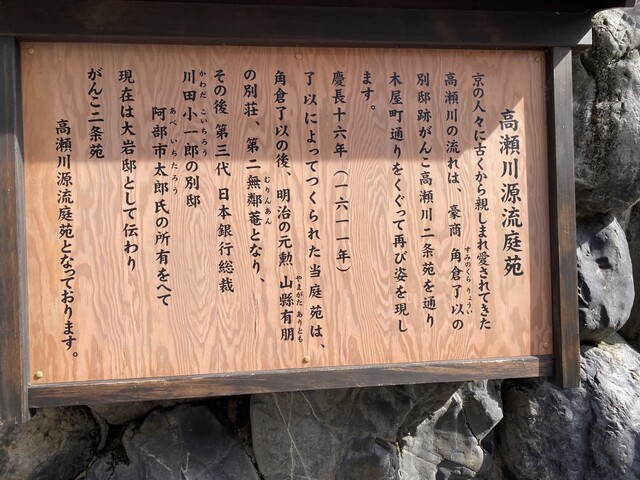 高瀬川源流庭苑
京の人々に古くから親しまれ愛されてきた
高瀬川の流れは、豪商 角倉了以の
すみのくら りょうい
別邸跡がんこ高瀬川二条苑を通り
木屋町通りをくぐって再び姿を現し
ます。
慶長十六年（一六一一年）
了以によってつくられた当庭苑は、
角倉了以の後、明治の元勲 山縣有朋
やまがた ありとも
の別荘、第二無鄰菴となり、
むりんあん
その後 第三代 日本銀行総裁
川田小一郎の別邸
かわだ こいちろう
阿部市太郎氏の所有をへて
あべいちたろう
現在は大岩邸として伝わり
がんこ二条苑
高瀬川源流庭苑となっております。